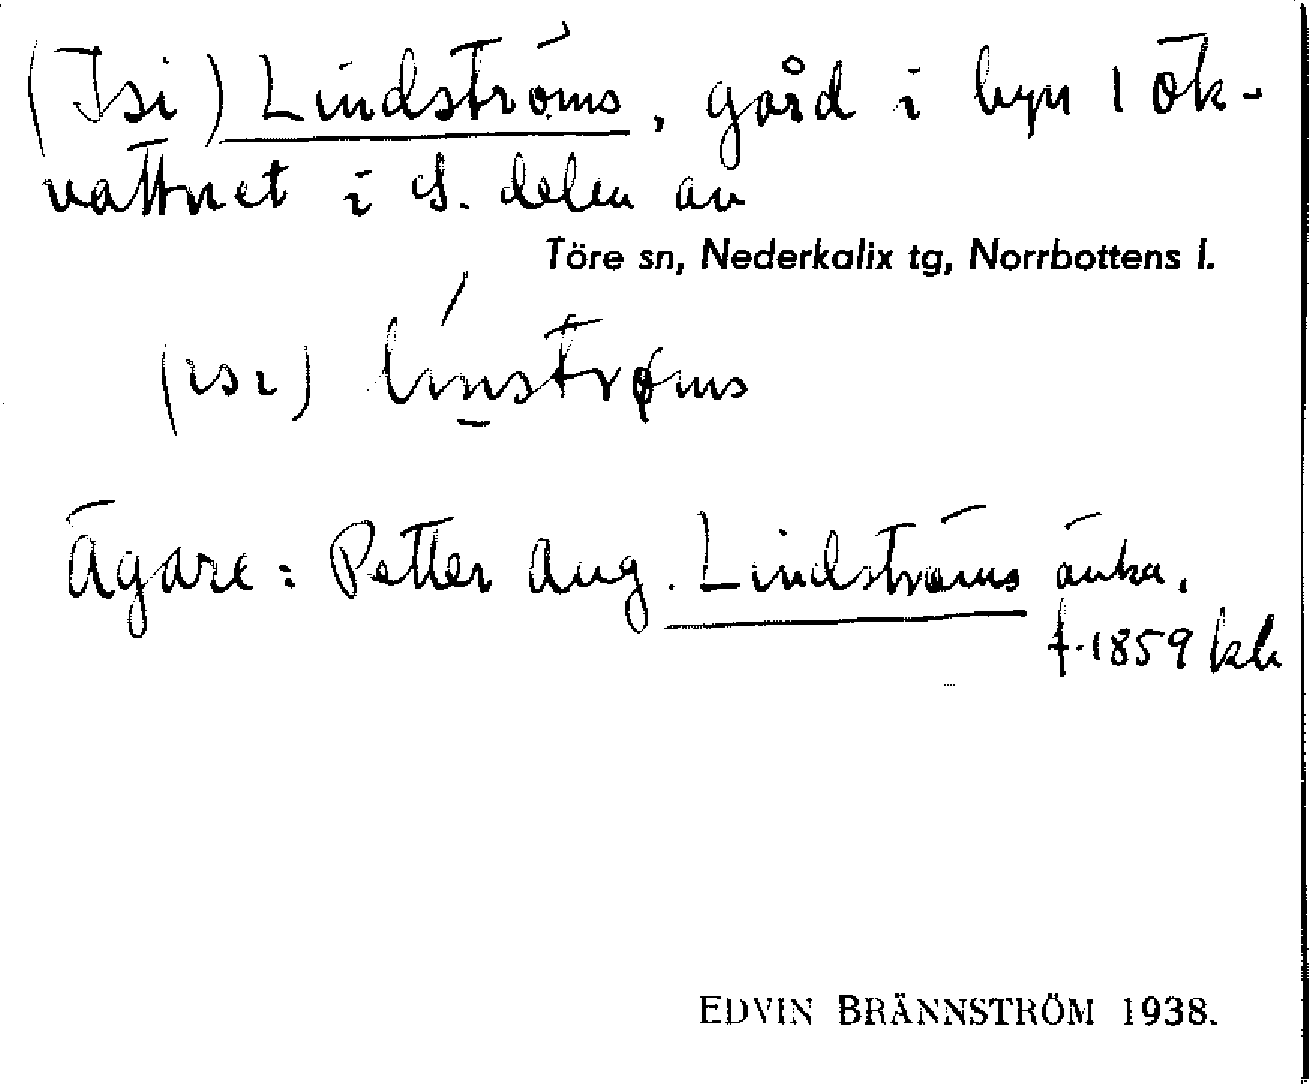 (Isi) Lindströms, gård i byn Lök-
vattnet i S. delen av
Töre sn, Nederkalix tg, Norrbottens l.
(ısı) línstrøms
Ägare: Petter Aug. Lindströms änka.
f. 1859 kk
EDVIN BRÄNNSTRÖM 1938.